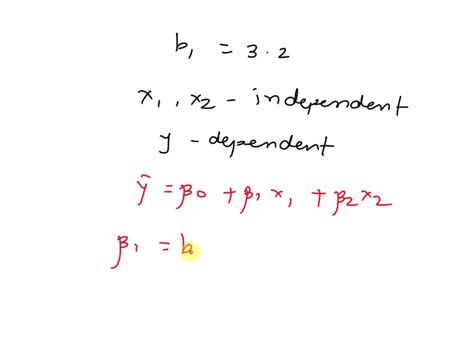 b₁ = 3.2
x₁, x₂ - independent
y - dependent
ȳ = β₀ + β₁x₁ + β₂x₂
β₁ = b